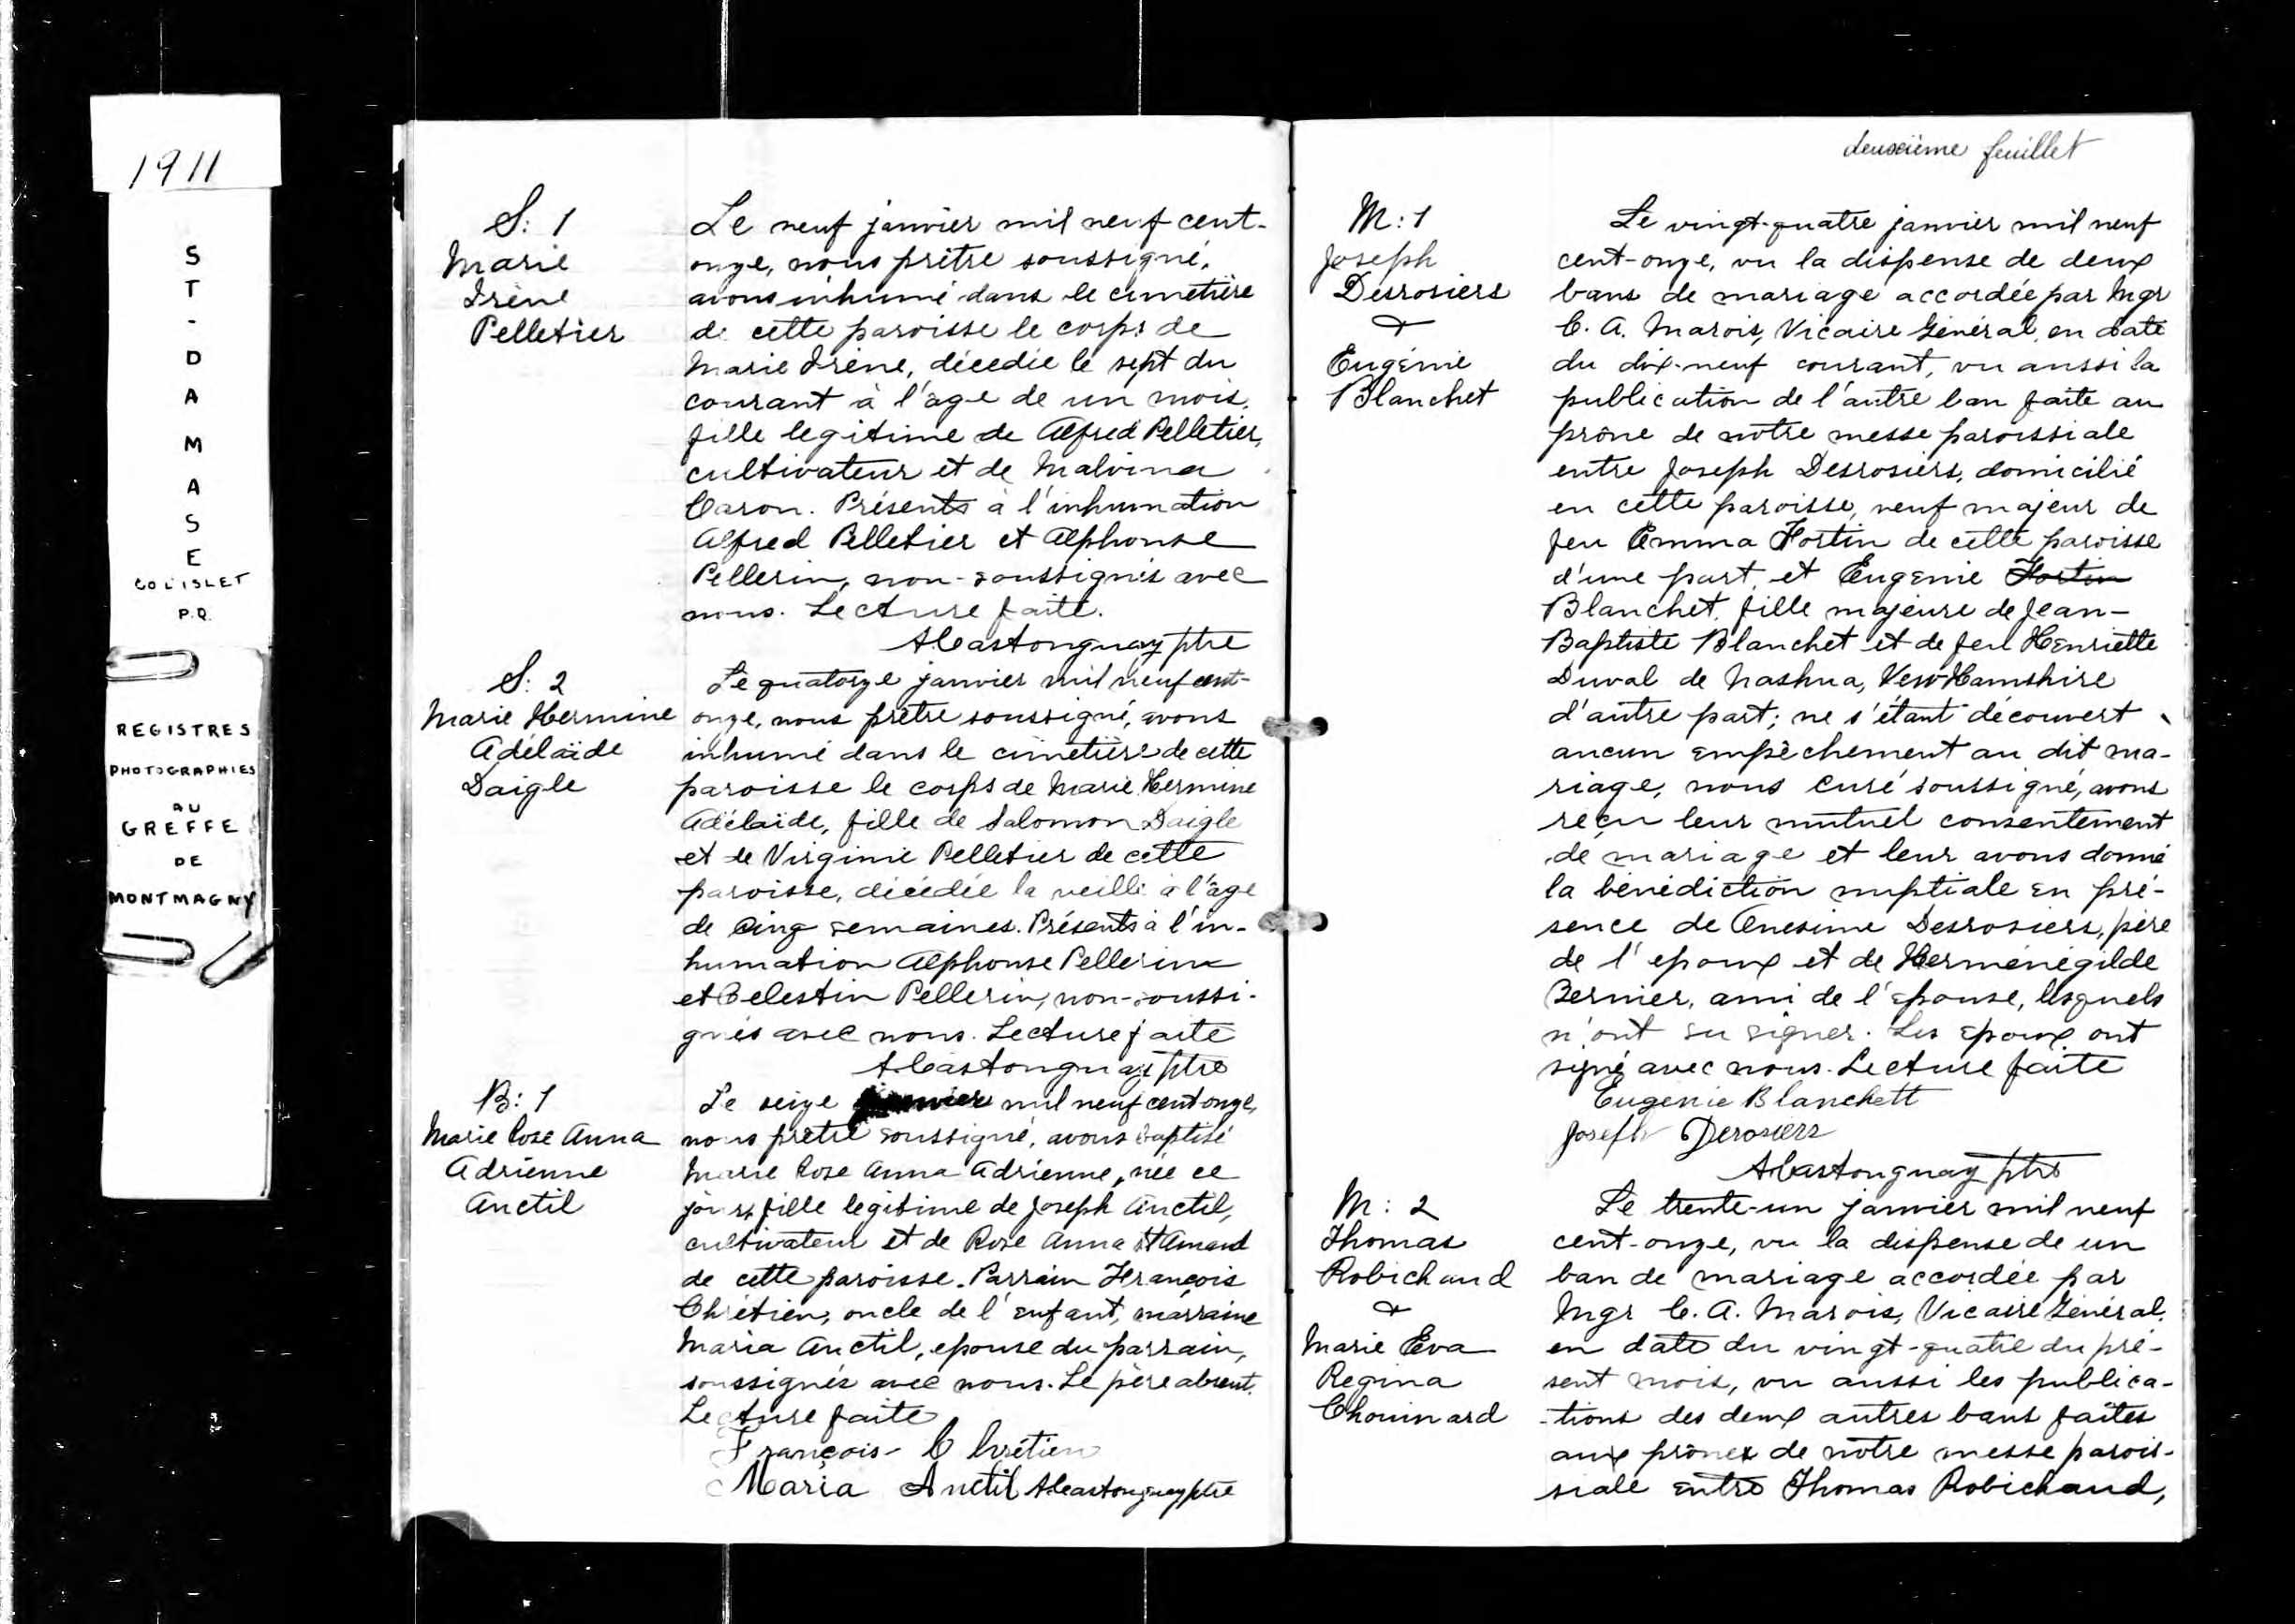 1911
S
T
-
D
A
M
A
S
E
CO L'ISLET
P.Q.
REGISTRES
PHOTOGRAPHIES
AU
GREFFE
DE
MONTMAGNY
S: 1
Marie
Irène
Pelletier
Le neuf janvier mil neuf cent-
onze, nous prêtre soussigné,
avons inhumé dans le cimetière
de cette paroisse le corps de
Marie Irène, décédée le sept du
courant à l'âge de un mois,
fille legitime de Alfred Pelletier,
cultivateur et de Malvina
Caron. Présents à l'inhumation
Alfred Pelletier et Alphonse
Pellerin, non-soussignés avec
nous. Lecture faite.
A Castonguay ptre
S: 2
Marie Hermine
Adélaïde
Daigle
Le quatorze janvier mil neuf cent-
onze, nous prêtre soussigné, avons
inhumé dans le cimetière de cette
paroisse le corps de Marie Hermine
Adélaïde, fille de Salomon Daigle
et de Virginie Pelletier de cette
paroisse, décédée la veille à l'âge
de cinq semaines. Présents à l'in-
humation Alphonse Pellerin
et Celestin Pellerin, non-soussi-
gnés avec nous. Lecture faite
A Castonguay ptre
B: 1
Marie Rose Anna
Adrienne
Anctil
Le seize janvier mil neuf cent onze,
nous prêtre soussigné, avons baptisé
Marie Rose Anna Adrienne, née ce
jour, fille legitime de Joseph Anctil,
cultivateur et de Rose Anna St Amand
de cette paroisse. Parrain François
Chrétien, oncle de l'enfant, marraine
Maria Anctil, epouse du parrain,
soussignés avec nous. Le père absent.
Lecture faite
François Chrétien
Maria Anctil A Castonguay ptre
deuxième feuillet
M: 1
Joseph
Desrosiers
&
Eugénie
Blanchet
Le vingt-quatre janvier mil neuf
cent-onze, vu la dispense de deux
bans de mariage accordée par Mgr
C. A. Marois, Vicaire Général, en date
du dix-neuf courant, vu aussi la
publication de l'autre ban faite au
prône de notre messe paroissiale
entre Joseph Desrosiers, domicilié
en cette paroisse, veuf majeur de
feu Emma Fortin de cette paroisse
d'une part, et Eugenie Fortin
Blanchet, fille majeure de Jean-
Baptiste Blanchet et de feu Henriette
Duval de Nashua, New Hamshire
d'autre part; ne s'étant découvert
aucun empêchement au dit ma-
riage, nous curé soussigné, avons
reçu leur mutuel consentement
de mariage et leur avons donné
la bénédiction nuptiale en pré-
sence de Onesime Desrosiers, père
de l'epoux et de Herménégilde
Bernier, ami de l'epouse, lesquels
n'ont su signer. Les epoux ont
signé avec nous. Lecture faite
Eugenie Blanchett
Joseph Derosiers
A Castonguay ptre
M: 2
Thomas
Robichaud
&
Marie Eva
Regina
Chouinard
Le trente-un janvier mil neuf
cent-onze, vu la dispense de un
ban de mariage accordée par
Mgr C. A. Marois, Vicaire Général,
en date du vingt-quatre du pré-
sent mois, vu aussi les publica-
-tions des deux autres bans faites
aux prônes de notre messe parois-
siale entre Thomas Robichaud,